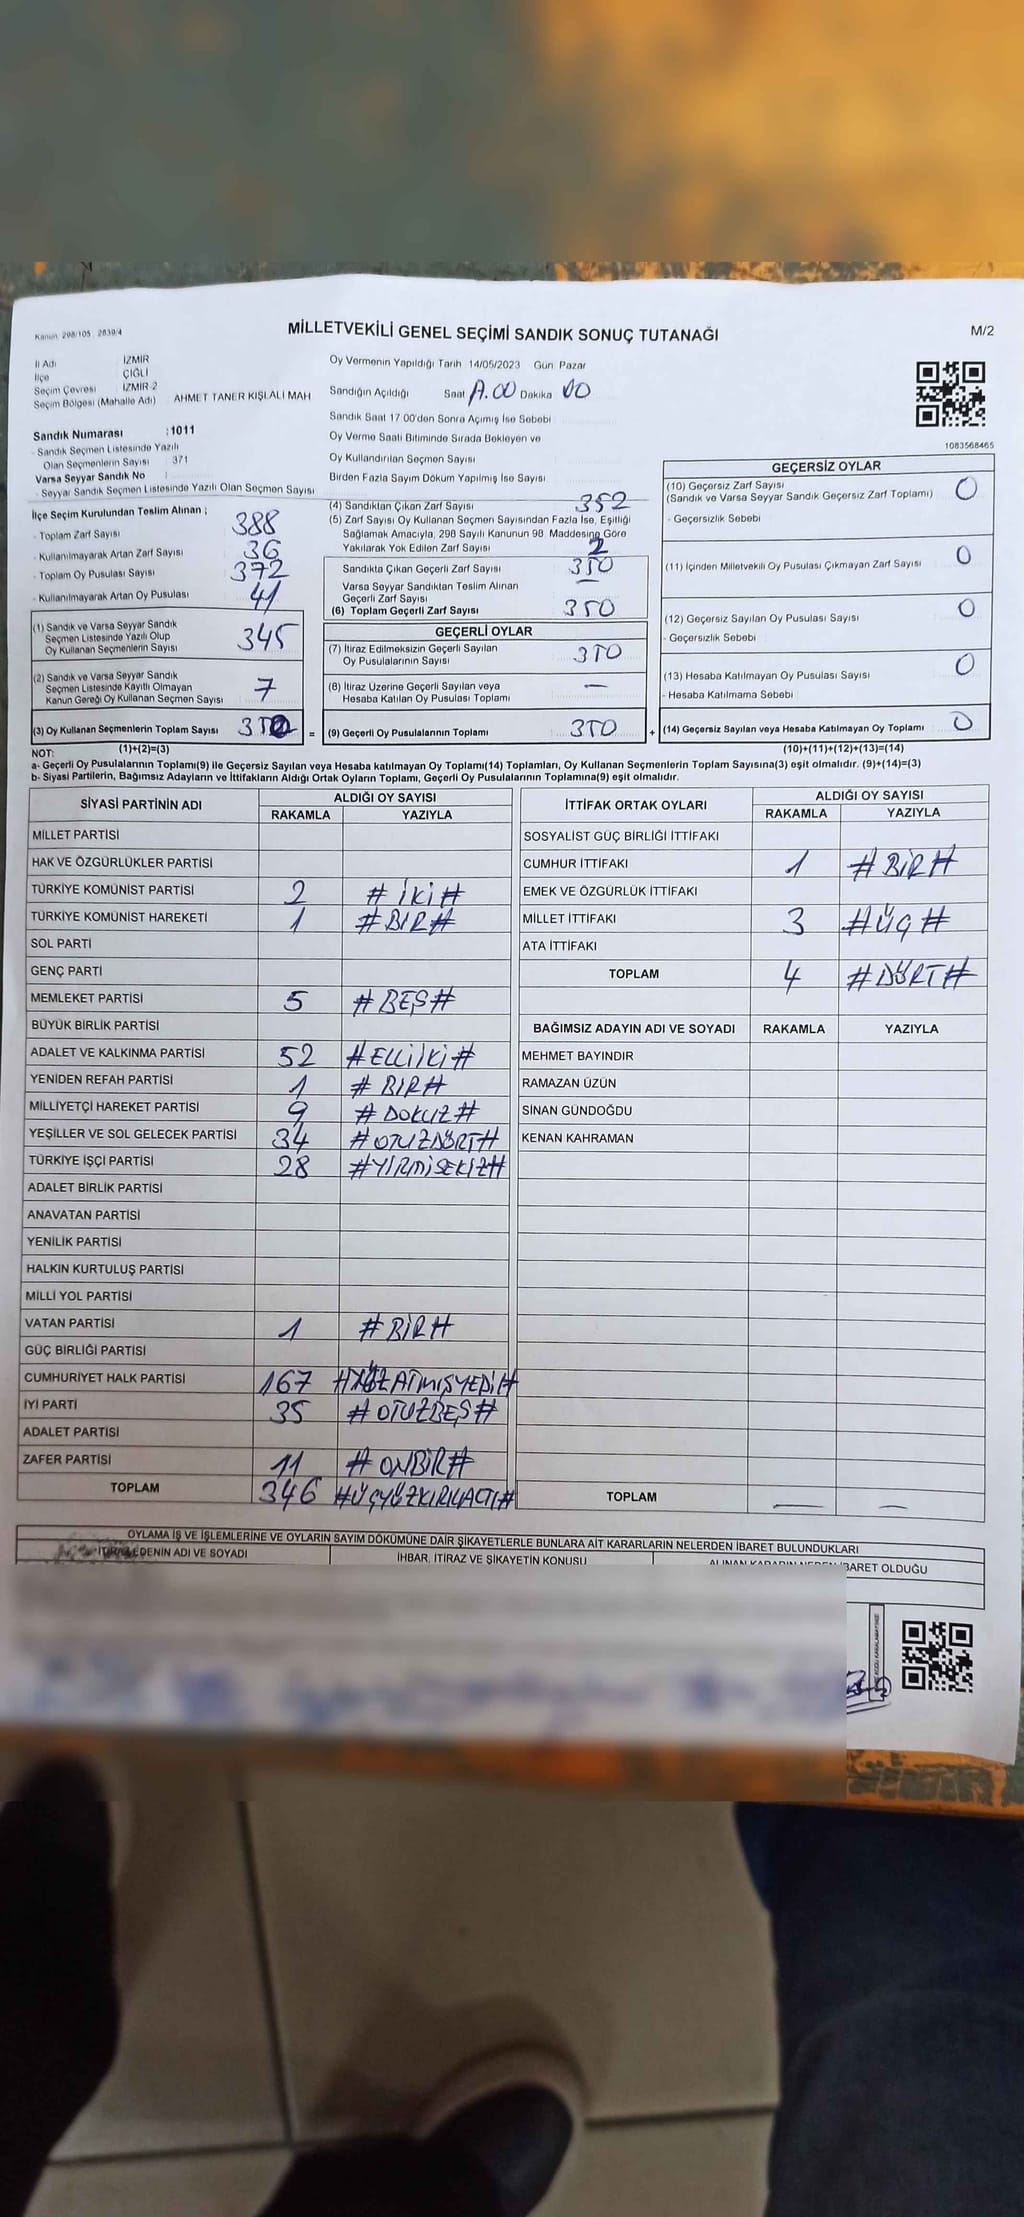 Kanun 298/105, 2839/4
MİLLETVEKİLİ GENEL SEÇİMİ SANDIK SONUÇ TUTANAĞI
M/2
İl Adı İZMİR
İlçe ÇİĞLİ
Seçim Çevresi İZMİR-2
Seçim Bölgesi (Mahalle Adı) AHMET TANER KIŞLALI MAH
Sandık Numarası :1011
- Sandık Seçmen Listesinde Yazılı
Olan Seçmenlerin Sayısı 371
Varsa Seyyar Sandık No :
- Seyyar Sandık Seçmen Listesinde Yazılı Olan Seçmen Sayısı
Oy Vermenin Yapıldığı Tarih 14/05/2023 Gün Pazar
Sandığın Açıldığı Saat Dakika 00
Sandık Saat 17:00'den Sonra Açımış İse Sebebi
Oy Verme Saati Bitiminde Sırada Bekleyen ve
Oy Kullandırılan Seçmen Sayısı
Birden Fazla Sayım Döküm Yapılmış İse Sayısı
1083568465
İlçe Seçim Kurulundan Teslim Alınan ;
- Toplam Zarf Sayısı 388
- Kullanılmayarak Artan Zarf Sayısı 36
- Toplam Oy Pusulası Sayısı 372
- Kullanılmayarak Artan Oy Pusulası 41
(1) Sandık ve Varsa Seyyar Sandık
Seçmen Listesinde Yazılı Olup
Oy Kullanan Seçmenlerin Sayısı 345
(2) Sandık ve Varsa Seyyar Sandık
Seçmen Listesinde Kayıtlı Olmayan
Kanun Gereği Oy Kullanan Seçmen Sayısı 7
(3) Oy Kullanan Seçmenlerin Toplam Sayısı 352 =
(4) Sandıktan Çıkan Zarf Sayısı 352
(5) Zarf Sayısı Oy Kullanan Seçmen Sayısından Fazla İse, Eşitliği
Sağlamak Amacıyla, 298 Sayılı Kanunun 98 Maddesine Göre
Yakılarak Yok Edilen Zarf Sayısı 2
Sandıkta Çıkan Geçerli Zarf Sayısı 350
Varsa Seyyar Sandıktan Teslim Alınan
Geçerli Zarf Sayısı —
(6) Toplam Geçerli Zarf Sayısı 350
GEÇERLİ OYLAR
(7) İtiraz Edilmeksizin Geçerli Sayılan
Oy Pusulalarının Sayısı 350
(8) İtiraz Üzerine Geçerli Sayılan veya
Hesaba Katılan Oy Pusulası Toplamı —
(9) Geçerli Oy Pusulalarının Toplamı 350 +
GEÇERSİZ OYLAR
(10) Geçersiz Zarf Sayısı 0
(Sandık ve Varsa Seyyar Sandık Geçersiz Zarf Toplamı)
- Geçersizlik Sebebi
(11) İçinden Milletvekili Oy Pusulası Çıkmayan Zarf Sayısı 0
(12) Geçersiz Sayılan Oy Pusulası Sayısı 0
- Geçersizlik Sebebi
(13) Hesaba Katılmayan Oy Pusulası Sayısı 0
- Hesaba Katılmama Sebebi
(14) Geçersiz Sayılan veya Hesaba Katılmayan Oy Toplamı 0
NOT: (1)+(2)=(3) (10)+(11)+(12)+(13)=(14)
a- Geçerli Oy Pusulalarının Toplamı(9) ile Geçersiz Sayılan veya Hesaba katılmayan Oy Toplamı(14) Toplamları, Oy Kullanan Seçmenlerin Toplam Sayısına(3) eşit olmalıdır. (9)+(14)=(3)
b- Siyasi Partilerin, Bağımsız Adayların ve İttifakların Aldığı Ortak Oyların Toplamı, Geçerli Oy Pusulalarının Toplamına(9) eşit olmalıdır.
SİYASİ PARTİNİN ADI ALDIĞI OY SAYISI
RAKAMLA YAZIYLA
MİLLET PARTİSİ
HAK VE ÖZGÜRLÜKLER PARTİSİ
TÜRKİYE KOMÜNİST PARTİSİ 2 # İKİ #
TÜRKİYE KOMÜNİST HAREKETİ 1 # BİR #
SOL PARTİ
GENÇ PARTİ
MEMLEKET PARTİSİ 5 # BEŞ #
BÜYÜK BİRLİK PARTİSİ
ADALET VE KALKINMA PARTİSİ 52 # ELLİİKİ #
YENİDEN REFAH PARTİSİ 1 # BİR #
MİLLİYETÇİ HAREKET PARTİSİ 9 # DOKUZ #
YEŞİLLER VE SOL GELECEK PARTİSİ 34 # OTUZDÖRT #
TÜRKİYE İŞÇİ PARTİSİ 28 # YİRMİSEKİZ #
ADALET BİRLİK PARTİSİ
ANAVATAN PARTİSİ
YENİLİK PARTİSİ
HALKIN KURTULUŞ PARTİSİ
MİLLİ YOL PARTİSİ
VATAN PARTİSİ 1 # BİR #
GÜÇ BİRLİĞİ PARTİSİ
CUMHURİYET HALK PARTİSİ 167 # YÜZATMIŞYEDİ #
İYİ PARTİ 35 # OTUZBEŞ #
ADALET PARTİSİ
ZAFER PARTİSİ 11 # ONBİR #
TOPLAM 346 # ÜÇYÜZKIRKALTI #
İTTİFAK ORTAK OYLARI ALDIĞI OY SAYISI
RAKAMLA YAZIYLA
SOSYALİST GÜÇ BİRLİĞİ İTTİFAKI
CUMHUR İTTİFAKI 1 # BİR #
EMEK VE ÖZGÜRLÜK İTTİFAKI
MİLLET İTTİFAKI 3 # ÜÇ #
ATA İTTİFAKI
TOPLAM 4 # DÖRT #
BAĞIMSIZ ADAYIN ADI VE SOYADI RAKAMLA YAZIYLA
MEHMET BAYINDIR
RAMAZAN ÜZÜN
SİNAN GÜNDOĞDU
KENAN KAHRAMAN
TOPLAM — —
OYLAMA İŞ VE İŞLEMLERİNE VE OYLARIN SAYIM DÖKÜMÜNE DAİR ŞİKAYETLERLE BUNLARA AİT KARARLARIN NELERDEN İBARET BULUNDUKLARI
İTİRAZ EDENİN ADI VE SOYADI İHBAR, İTİRAZ VE ŞİKAYETİN KONUSU ALINAN KARARIN NEDEN İBARET OLDUĞU